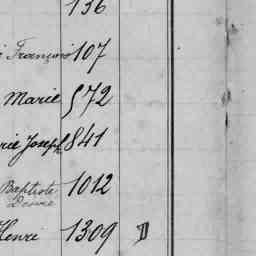 136
François 107
Marie 572
rie Joseph 841
Baptiste 1012
Désiré
Henri 1309 D